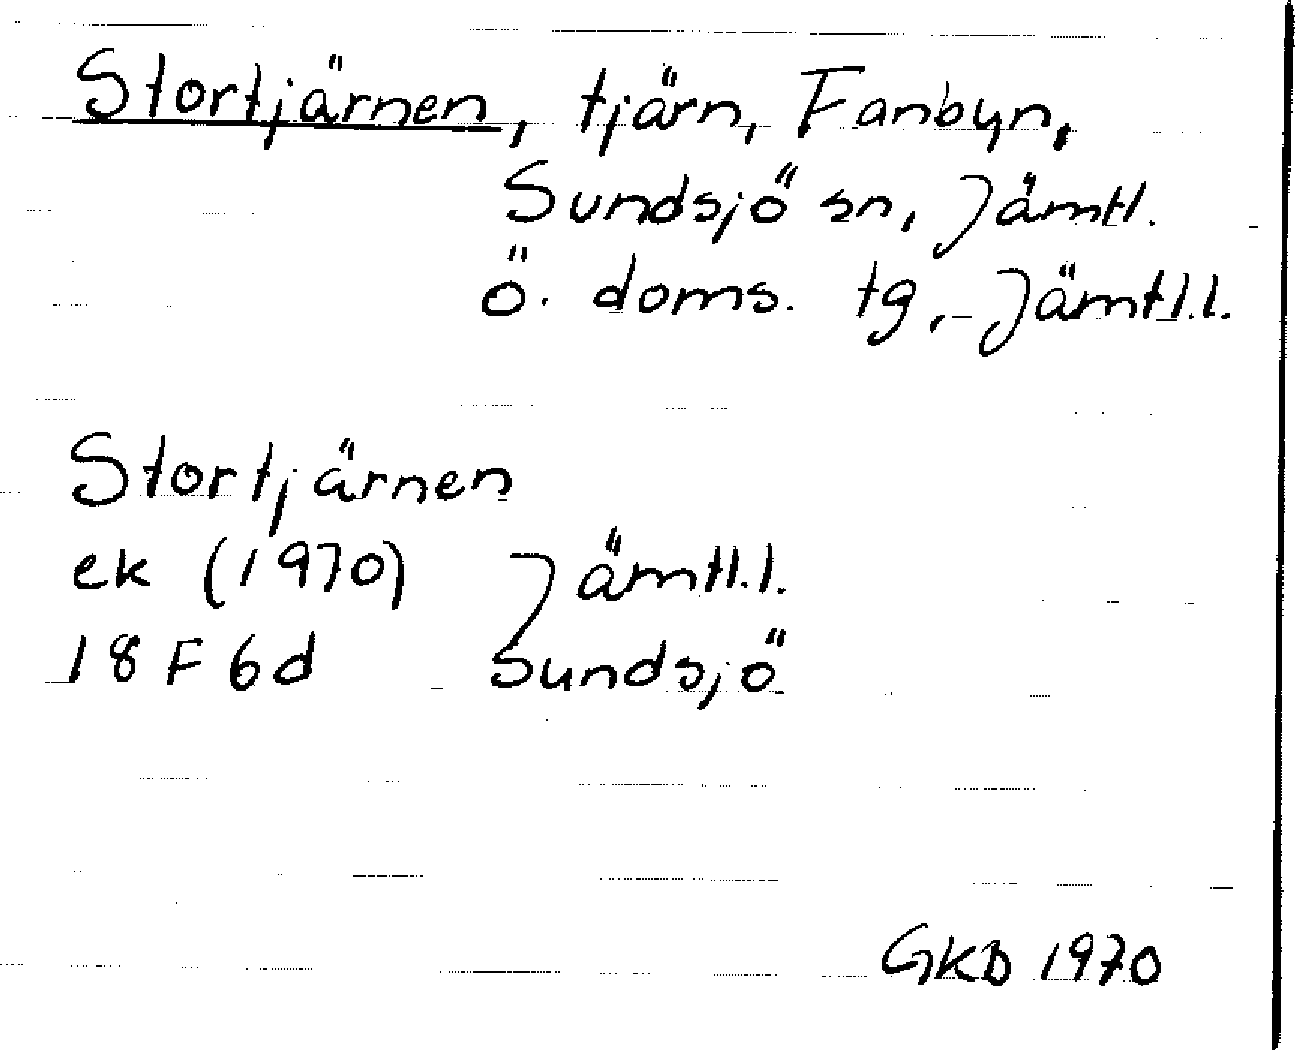 Stortjärnen, tjärn, Fanbyn,
Sundsjö sn, Jämtl.
ö. doms. tg, Jämtl.l.
Stortjärnen
ek (1970) Jämtl.l.
18 F 6d Sundsjö
GKB 1970